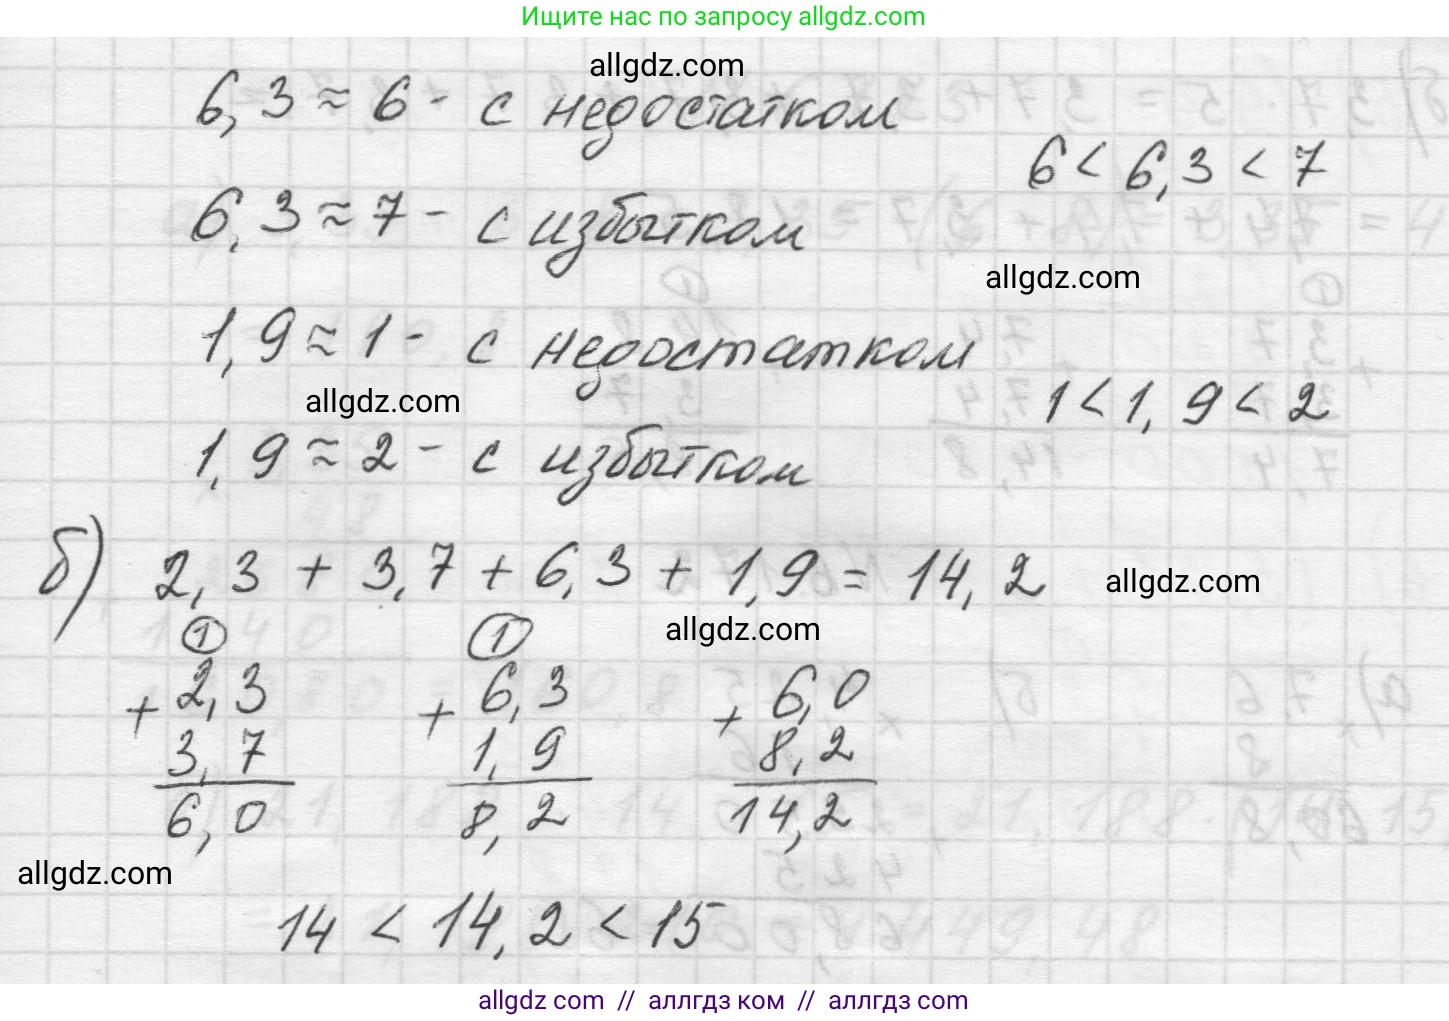 Ищите нас по запросу allgdz.com
allgdz.com
6,3 ≈ 6 - с недостатком
6 < 6,3 < 7
6,3 ≈ 7 - с избытком
allgdz.com
1,9 ≈ 1 - с недостатком
allgdz.com
1 < 1,9 < 2
1,9 ≈ 2 - с избытком
б) 2,3 + 3,7 + 6,3 + 1,9 = 14,2
allgdz.com
allgdz.com
1 1
+ 2,3 + 6,3 + 6,0
3,7 1,9 8,2
6,0 8,2 14,2
allgdz.com
14 < 14,2 < 15
allgdz com // аллгдз ком // аллгдз com